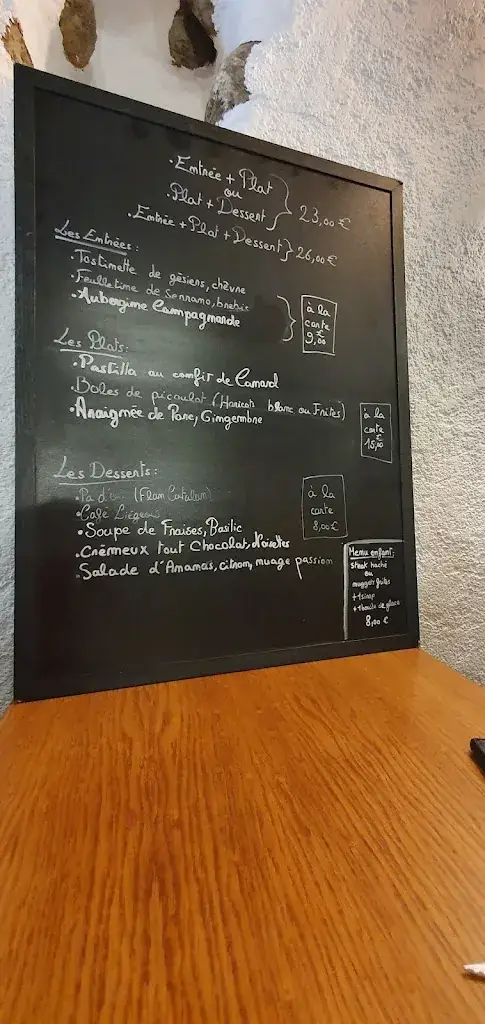 • Entrée + Plat
ou
• Plat + Dessert
23,00 €
• Entrée + Plat + Dessert } 26,00 €
Les Entrées :
• Tostimette de gésiens, chèvre
• Feuilletine de Serrano, brebis
• Aubergine Campagnarde
à la
carte
9,00 €
Les Plats :
• Pastilla au confit de Canard
• Boles de picoulat (Haricots blanc ou Frites)
• Araignée de Porc, Gingembre
à la
carte
15,00 €
Les Desserts :
• Pa d' (Flam Catalan)
• Café Liégeois
• Soupe de Fraises, Basilic
• Crémeux tout Chocolat, Noisettes
• Salade d'Ananas, citron, nuage passion
à la
carte
8,00 €
Menu enfant :
Steak haché
ou
nuggets frites
+ 1 sirop
+ 1 boule de glace
8,00 €